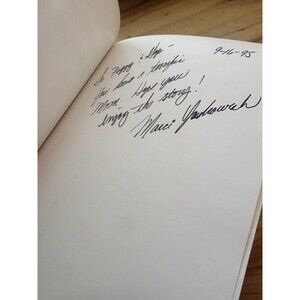 9-16-95
To Poppy & 
You have a terrific
Mom. Hope you
enjoy the story!
Marci